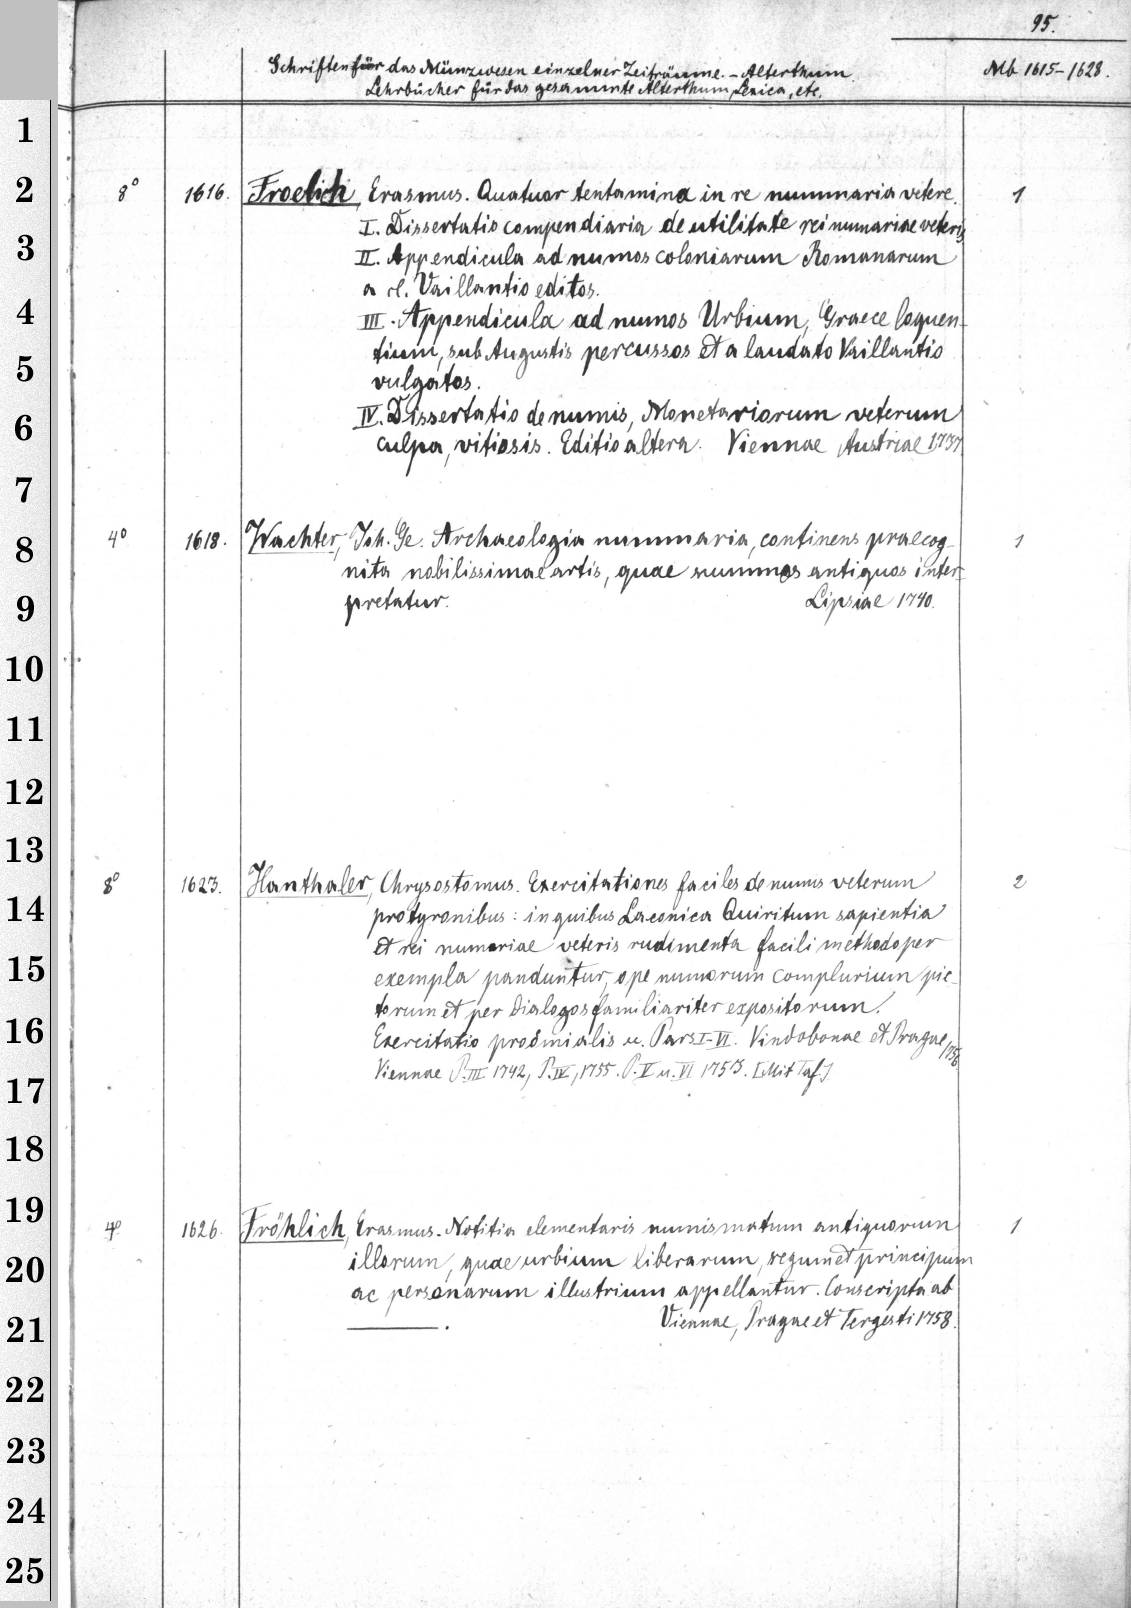 95.
Schriften für das Münzwesen einzelner Zeiträume. - Alterthum.
Mb 1615-1628.
Lehrbücher für das gesammte Alterthum, Lexica, etc.
1
2
8° 1616. Froelich, Erasmus. Quatuor tentamina in re nummaria vetere. 1
I. Dissertatio compendiaria de utilitate rei numariae veteris
3
II. Appendicula ad numos coloniarum Romanarum
a cl. Vaillantio editos.
4
III. Appendicula ad numos Urbium, Graece loquen-
tium, sub Augustis percussos et a laudato Vaillantio
5
vulgatos.
6
IV. Dissertatio de numis, Monetariorum veterum
culpa, vitiosis. Editio altera. Viennae Austriae 1737
7
8
4° 1618. Wachter, Joh. Ge. Archaeologia nummaria, continens praecog- 1
nita nobilissimae artis, quae nummos antiquos inter-
9
pretatur. Lipsiae 1740.
10
11
12
13
8° 1623. Hanthaler, Chrysostomus. Exercitationes faciles de numis veterum 2
14
pro tyronibus: in quibus Laconica Quiritum sapientia
et rei numariae veteris rudimenta facili methodo per
15
exempla panduntur, ope numorum complurium pic-
torum et per Dialogos familiariter expositorum.
16
Exercitatio prooimialis u. Pars I-VI. Vindobonae et Pragae 1756
Viennae P. III 1742, P. IV, 1755. P. V u. VI 1753. [Mit Taf.]
17
18
19
4° 1626. Fröhlich, Erasmus. Notitia elementaris numismatum antiquorum 1
20
illorum, quae urbium liberarum, regum et principum
ac personarum illustrium appellantur. Conscripta ab
21
———. Viennae, Pragae et Tergesti 1758.
22
23
24
25